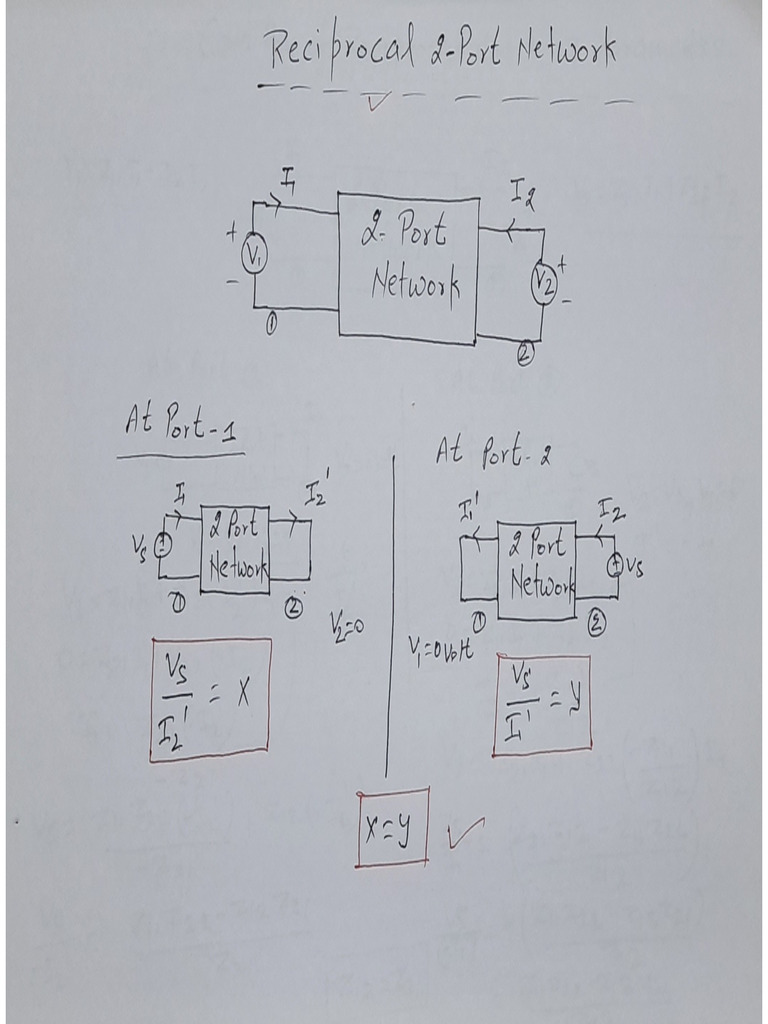 Reciprocal 2-Port Network
I1
I2
+
V1
-
2-Port
Network
V2
+
-
①
②
At Port-1
I1
I2'
Vs
2 Port
Network
①
②
V2=0
Vs
I2'
= X
At Port-2
I1'
I2
2 Port
Network
Vs
①
②
V1=0 volt
Vs'
I1'
= y
X=y